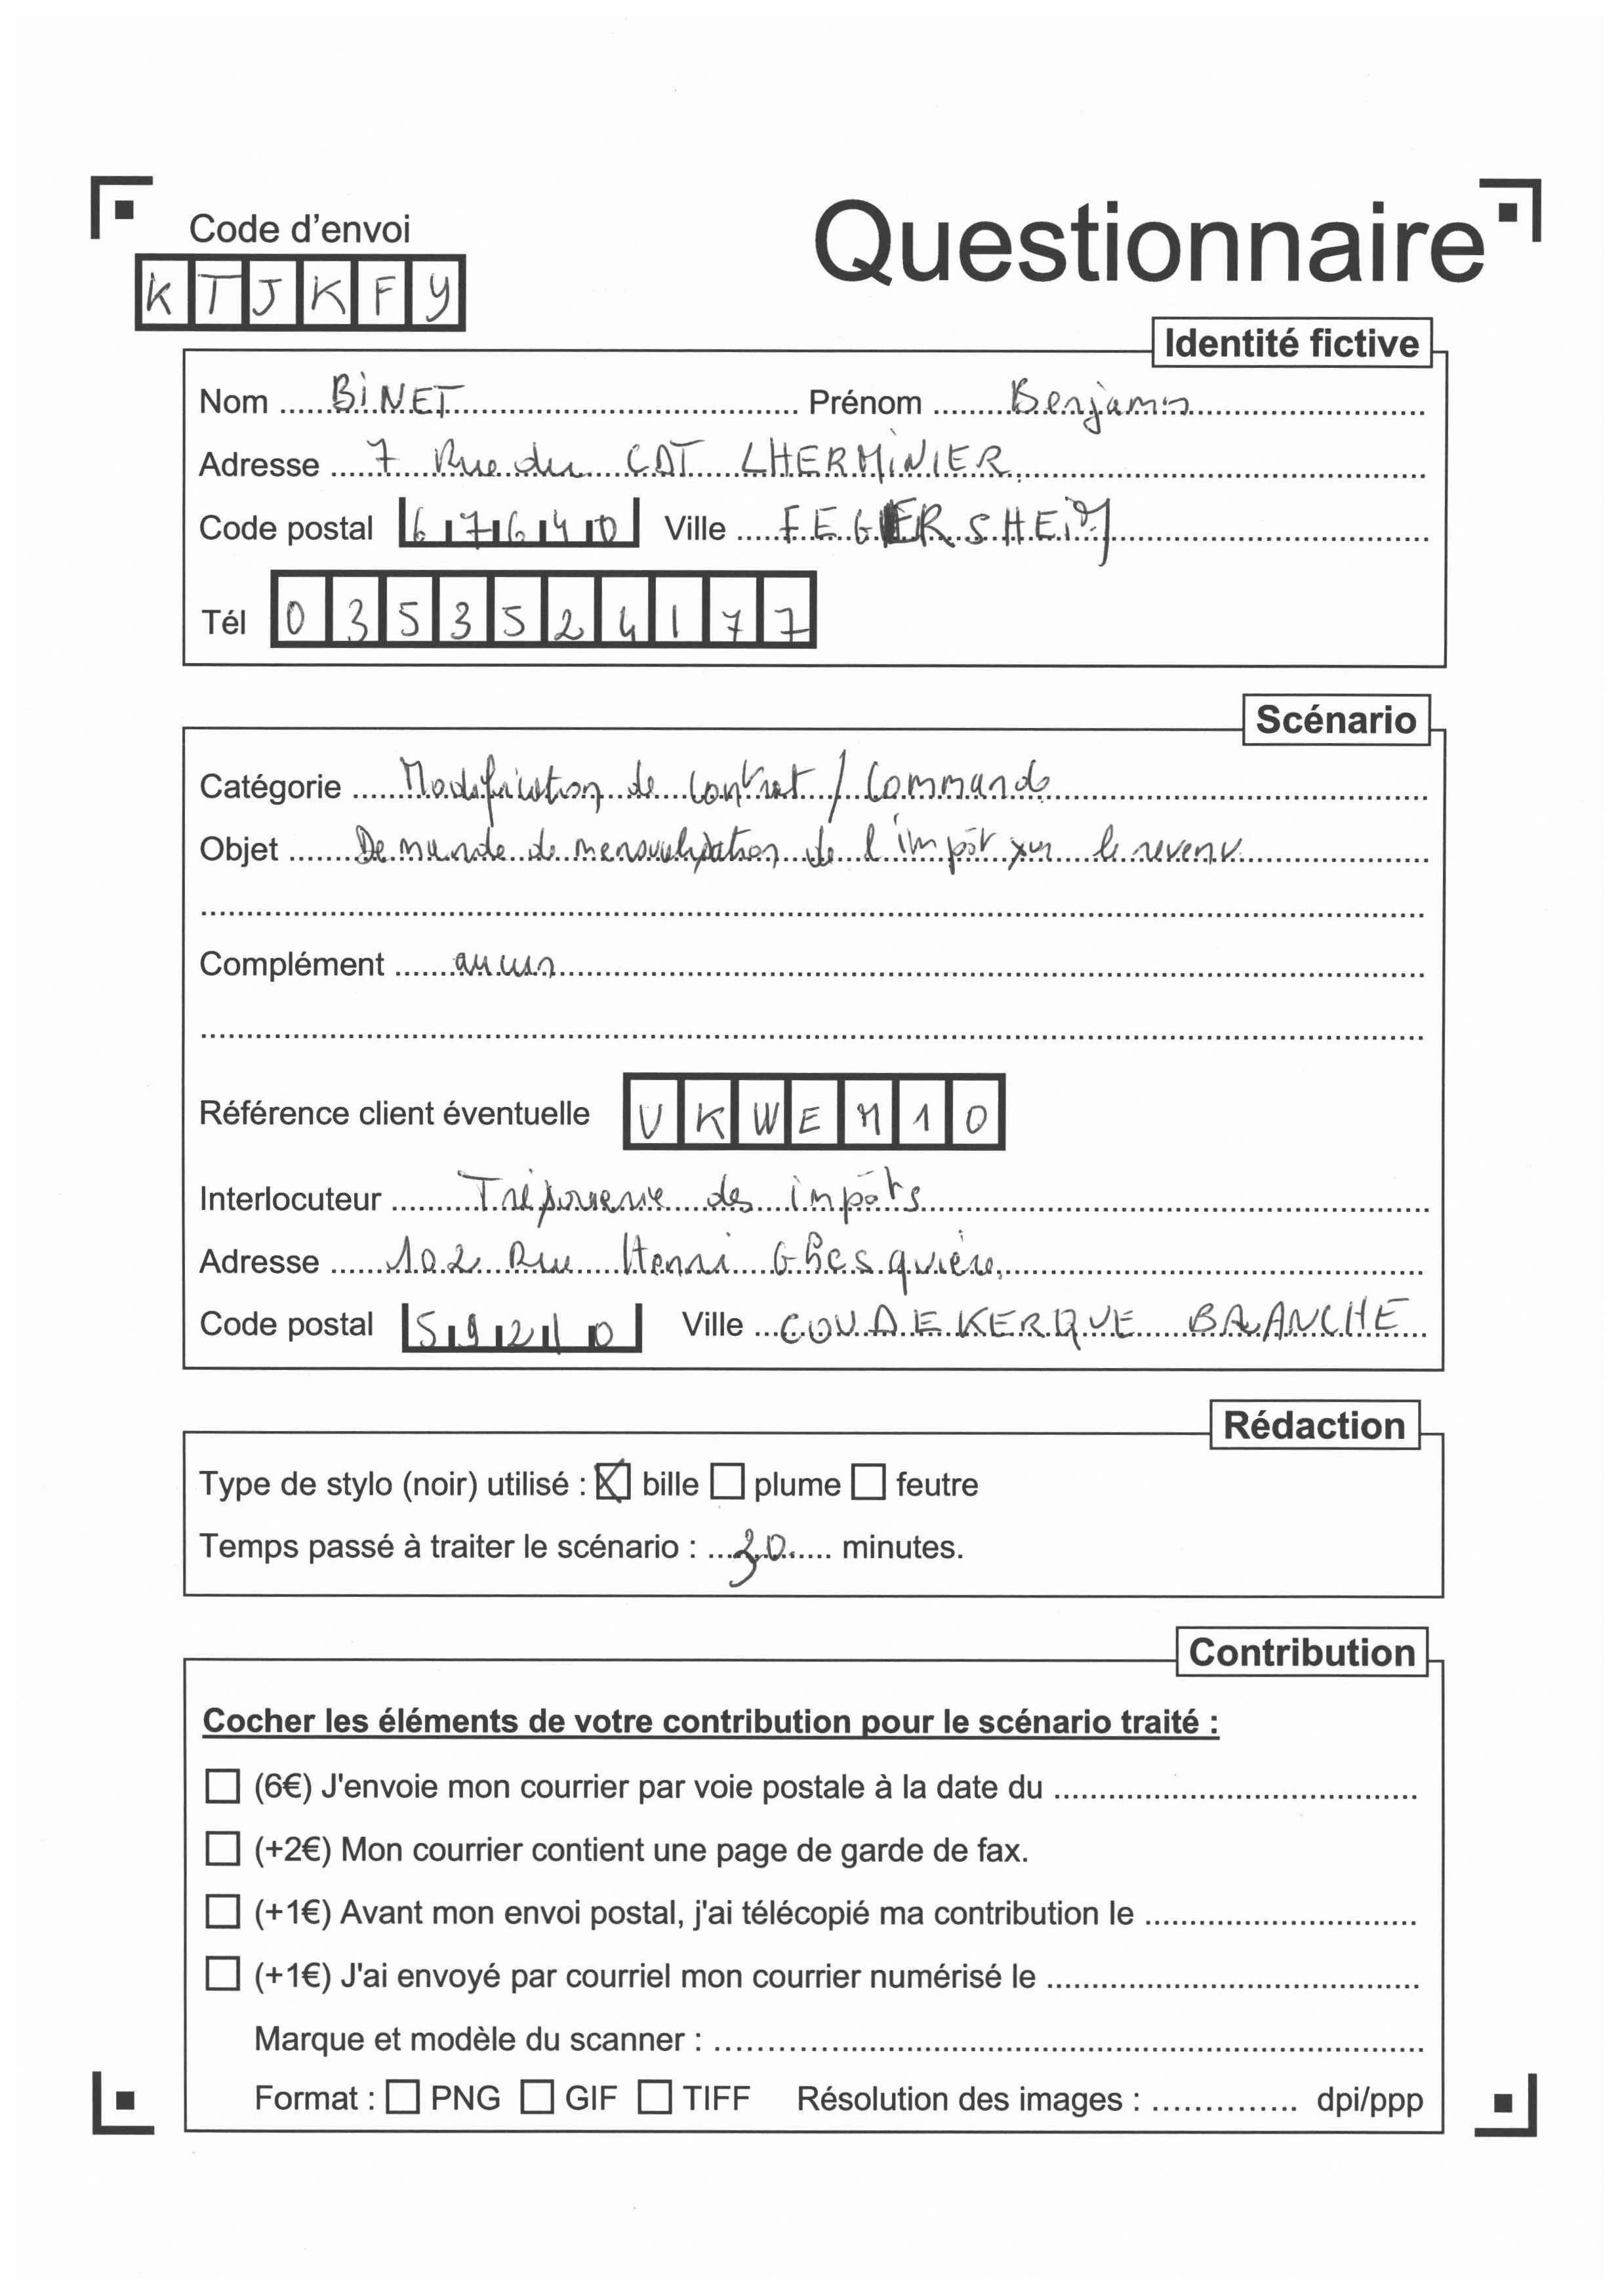 Code d'envoi
Questionnaire
KTJKFY
Identité fictive
Nom BINET Prénom Benjamin
Adresse 7 Rue du CDT LHERMINIER
Code postal 67640 Ville FEGERSHEIM
Tél 0353524177
Scénario
Catégorie Modification de contrat / Commande
Objet Demande de mensualisation de l'impôt sur le revenu
Complément aucun
Référence client éventuelle VKWEM10
Interlocuteur Trésorerie des impôts
Adresse 102 Rue Henri Ghesquière
Code postal 59210 Ville COUDEKERQUE BRANCHE
Rédaction
Type de stylo (noir) utilisé : bille plume feutre
Temps passé à traiter le scénario : 30 minutes.
Contribution
Cocher les éléments de votre contribution pour le scénario traité :
(6€) J'envoie mon courrier par voie postale à la date du
(+2€) Mon courrier contient une page de garde de fax.
(+1€) Avant mon envoi postal, j'ai télécopié ma contribution le
(+1€) J'ai envoyé par courriel mon courrier numérisé le
Marque et modèle du scanner :
Format : PNG GIF TIFF Résolution des images : dpi/ppp